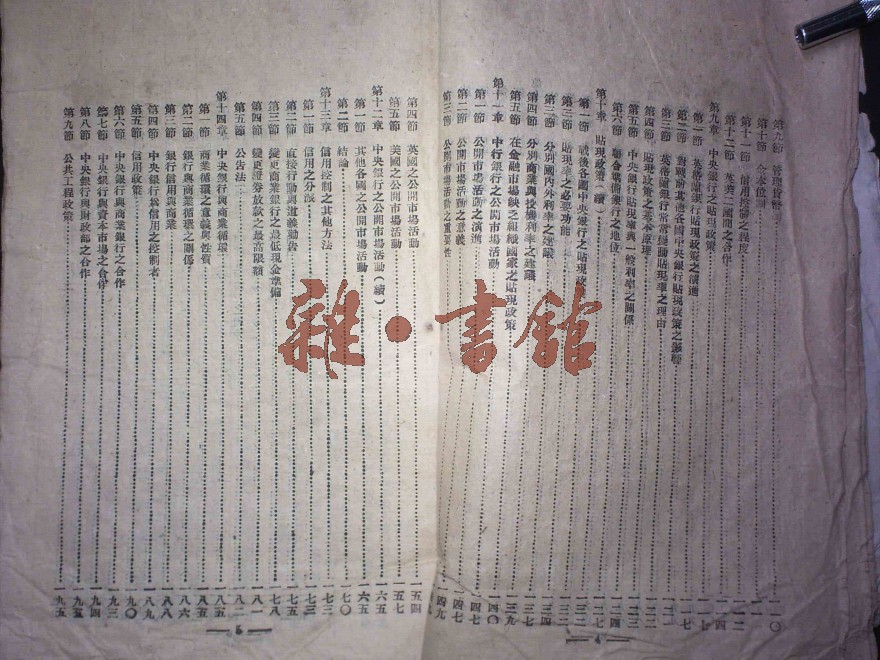 第九節 管理貨幣
第十節 金本位制
第十一節 信用控制之程度
第十二節 英美二國間之合作
第九章 中央銀行之貼現政策
第一節 英格蘭銀行貼現政策之演進
第二節 對戰前其他各國中央銀行貼現政策之影響
第三節 英格蘭銀行常常變動貼現率之理由
第四節 貼現政策之基本原理
第五節 中央銀行貼現率與一般利率之關係
第六節 聯合準備銀行之地位
第十章 貼現政策(續) 一二七
第一節 戰後各國中央銀行之貼現政
第二節 貼現率之必要功能
第三節 分別國內外利率之建議 一三四
第四節 分別商業與投機利率之建議
第五節 在金融市場缺乏組織國家之貼現政策 一三九
第十一章 中行銀行之公開市場活動 一四〇
第一節 公開市場活動之演進 一四七
第二節 公開市場活動之意義 一四七
第三節 公開市場活動之重要性 一四九
4
第四節 英國之公開市場活動 一五四
第五節 美國之公開市場活動 一五七
第十二章 中央銀行之公開市場活動(續) 一六五
第一節 其他各國之公開市場活動 一六五
第二節 結論 一七〇
第十三章 信用控制之其他方法 一七三
第一節 信用之分派 一七三
第二節 直接行動與道義勸告 一七五
第三節 變更商業銀行之最低現金準備 一七八
第四節 變更證券放款之最高限額 一八一
第五節 公告法 一八二
第十四章 中央銀行與商業循環 一八五
第一節 商業循環之意義與性質 一八五
第二節 銀行與商業循環之關係 一八六
第三節 銀行信用與商業 一八八
第四節 中央銀行為信用之控制者 一八九
第五節 信用政策 一九〇
第六節 中央銀行與商業銀行之合作 一九三
第七節 中央銀行與資本市場之合作 一九四
第八節 中央銀行與財政部之合作 一九五
第九節 公共工程政策 一九五
5
雜·書館